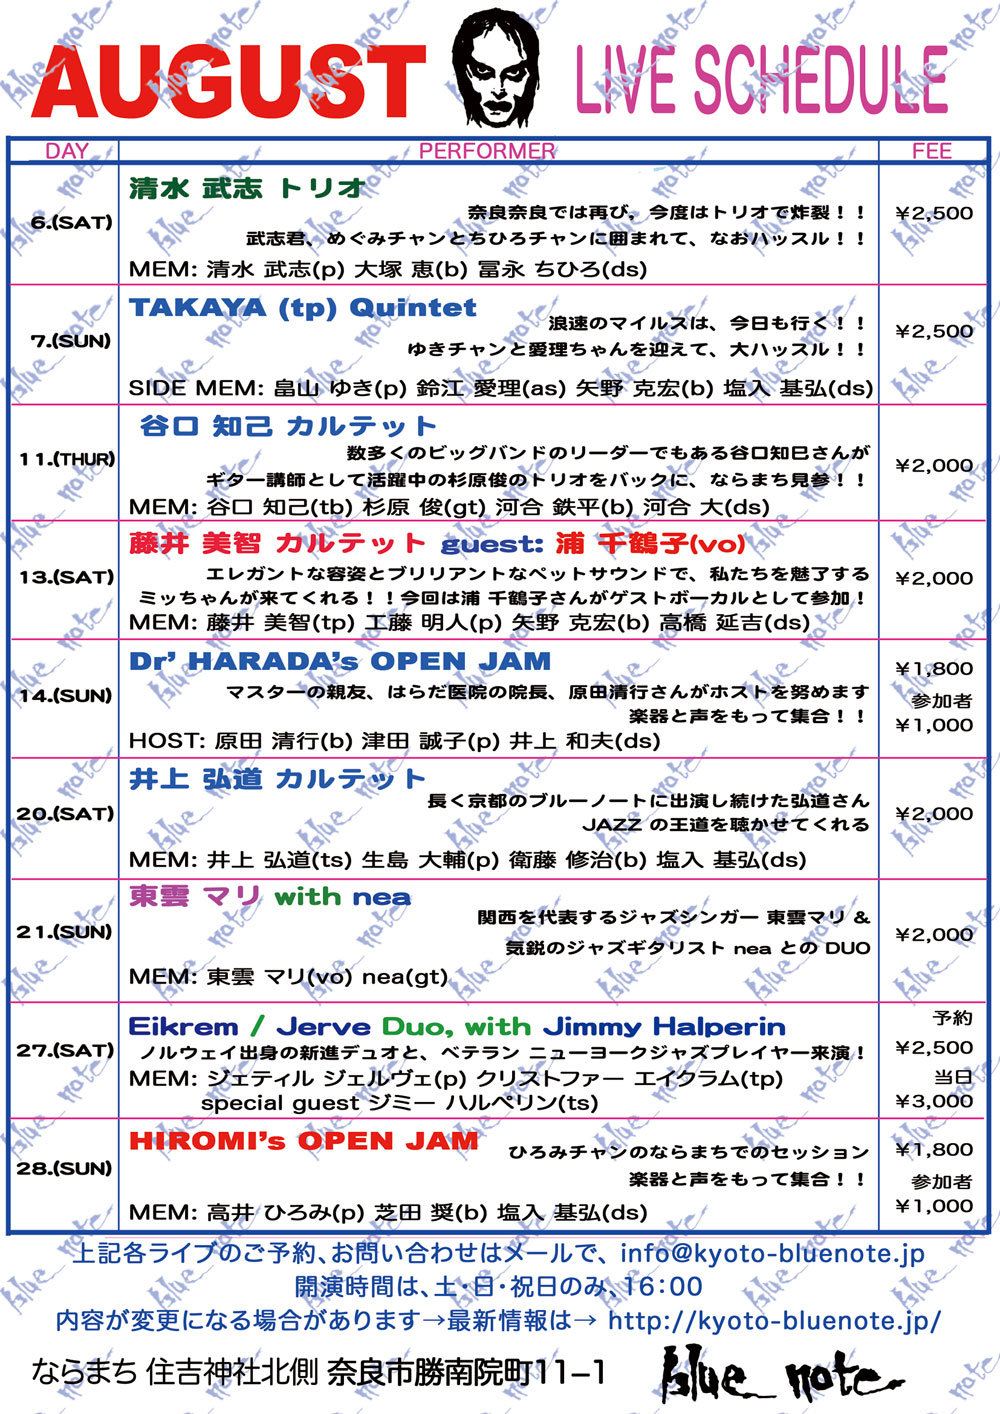 AUGUST LIVE SCHEDULE
DAY PERFORMER FEE
6.(SAT)
清水 武志 トリオ
奈良奈良では再び，今度はトリオで炸裂！！
武志君、めぐみチャンとちひろチャンに囲まれて、なおハッスル！！
MEM: 清水 武志(p) 大塚 恵(b) 冨永 ちひろ(ds)
¥2,500
7.(SUN)
TAKAYA (tp) Quintet
浪速のマイルスは、今日も行く！！
ゆきチャンと愛理ちゃんを迎えて、大ハッスル！！
SIDE MEM: 畠山 ゆき(p) 鈴江 愛理(as) 矢野 克宏(b) 塩入 基弘(ds)
¥2,500
11.(THUR)
谷口 知己 カルテット
数多くのビッグバンドのリーダーでもある谷口知巳さんが
ギター講師として活躍中の杉原俊のトリオをバックに、ならまち見参！！
MEM: 谷口 知己(tb) 杉原 俊(gt) 河合 鉄平(b) 河合 大(ds)
¥2,000
13.(SAT)
藤井 美智 カルテット guest: 浦 千鶴子(vo)
エレガントな容姿とブリリアントなペットサウンドで、私たちを魅了する
ミッちゃんが来てくれる！！今回は浦 千鶴子さんがゲストボーカルとして参加！
MEM: 藤井 美智(tp) 工藤 明人(p) 矢野 克宏(b) 高橋 延吉(ds)
¥2,000
14.(SUN)
Dr’ HARADA’s OPEN JAM
マスターの親友、はらだ医院の院長、原田清行さんがホストを努めます
楽器と声をもって集合！！
HOST: 原田 清行(b) 津田 誠子(p) 井上 和夫(ds)
¥1,800
参加者
¥1,000
20.(SAT)
井上 弘道 カルテット
長く京都のブルーノートに出演し続けた弘道さん
JAZZ の王道を聴かせてくれる
MEM: 井上 弘道(ts) 生島 大輔(p) 衛藤 修治(b) 塩入 基弘(ds)
¥2,000
21.(SUN)
東雲 マリ with nea
関西を代表するジャズシンガー 東雲マリ &
気鋭のジャズギタリスト nea との DUO
MEM: 東雲 マリ(vo) nea(gt)
¥2,000
27.(SAT)
Eikrem / Jerve Duo, with Jimmy Halperin
ノルウェイ出身の新進デュオと、ベテラン ニューヨークジャズプレイヤー来演！
MEM: ジェティル ジェルヴェ(p) クリストファー エイクラム(tp)
special guest ジミー ハルペリン(ts)
予約
¥2,500
当日
¥3,000
28.(SUN)
HIROMI’s OPEN JAM
ひろみチャンのならまちでのセッション
楽器と声をもって集合！！
MEM: 高井 ひろみ(p) 芝田 奨(b) 塩入 基弘(ds)
¥1,800
参加者
¥1,000
上記各ライブのご予約、お問い合わせはメールで、 info@kyoto-bluenote.jp
開演時間は、土・日・祝日のみ、16：00
内容が変更になる場合があります→最新情報は→ http://kyoto-bluenote.jp/
ならまち 住吉神社北側 奈良市勝南院町11−1 blue note